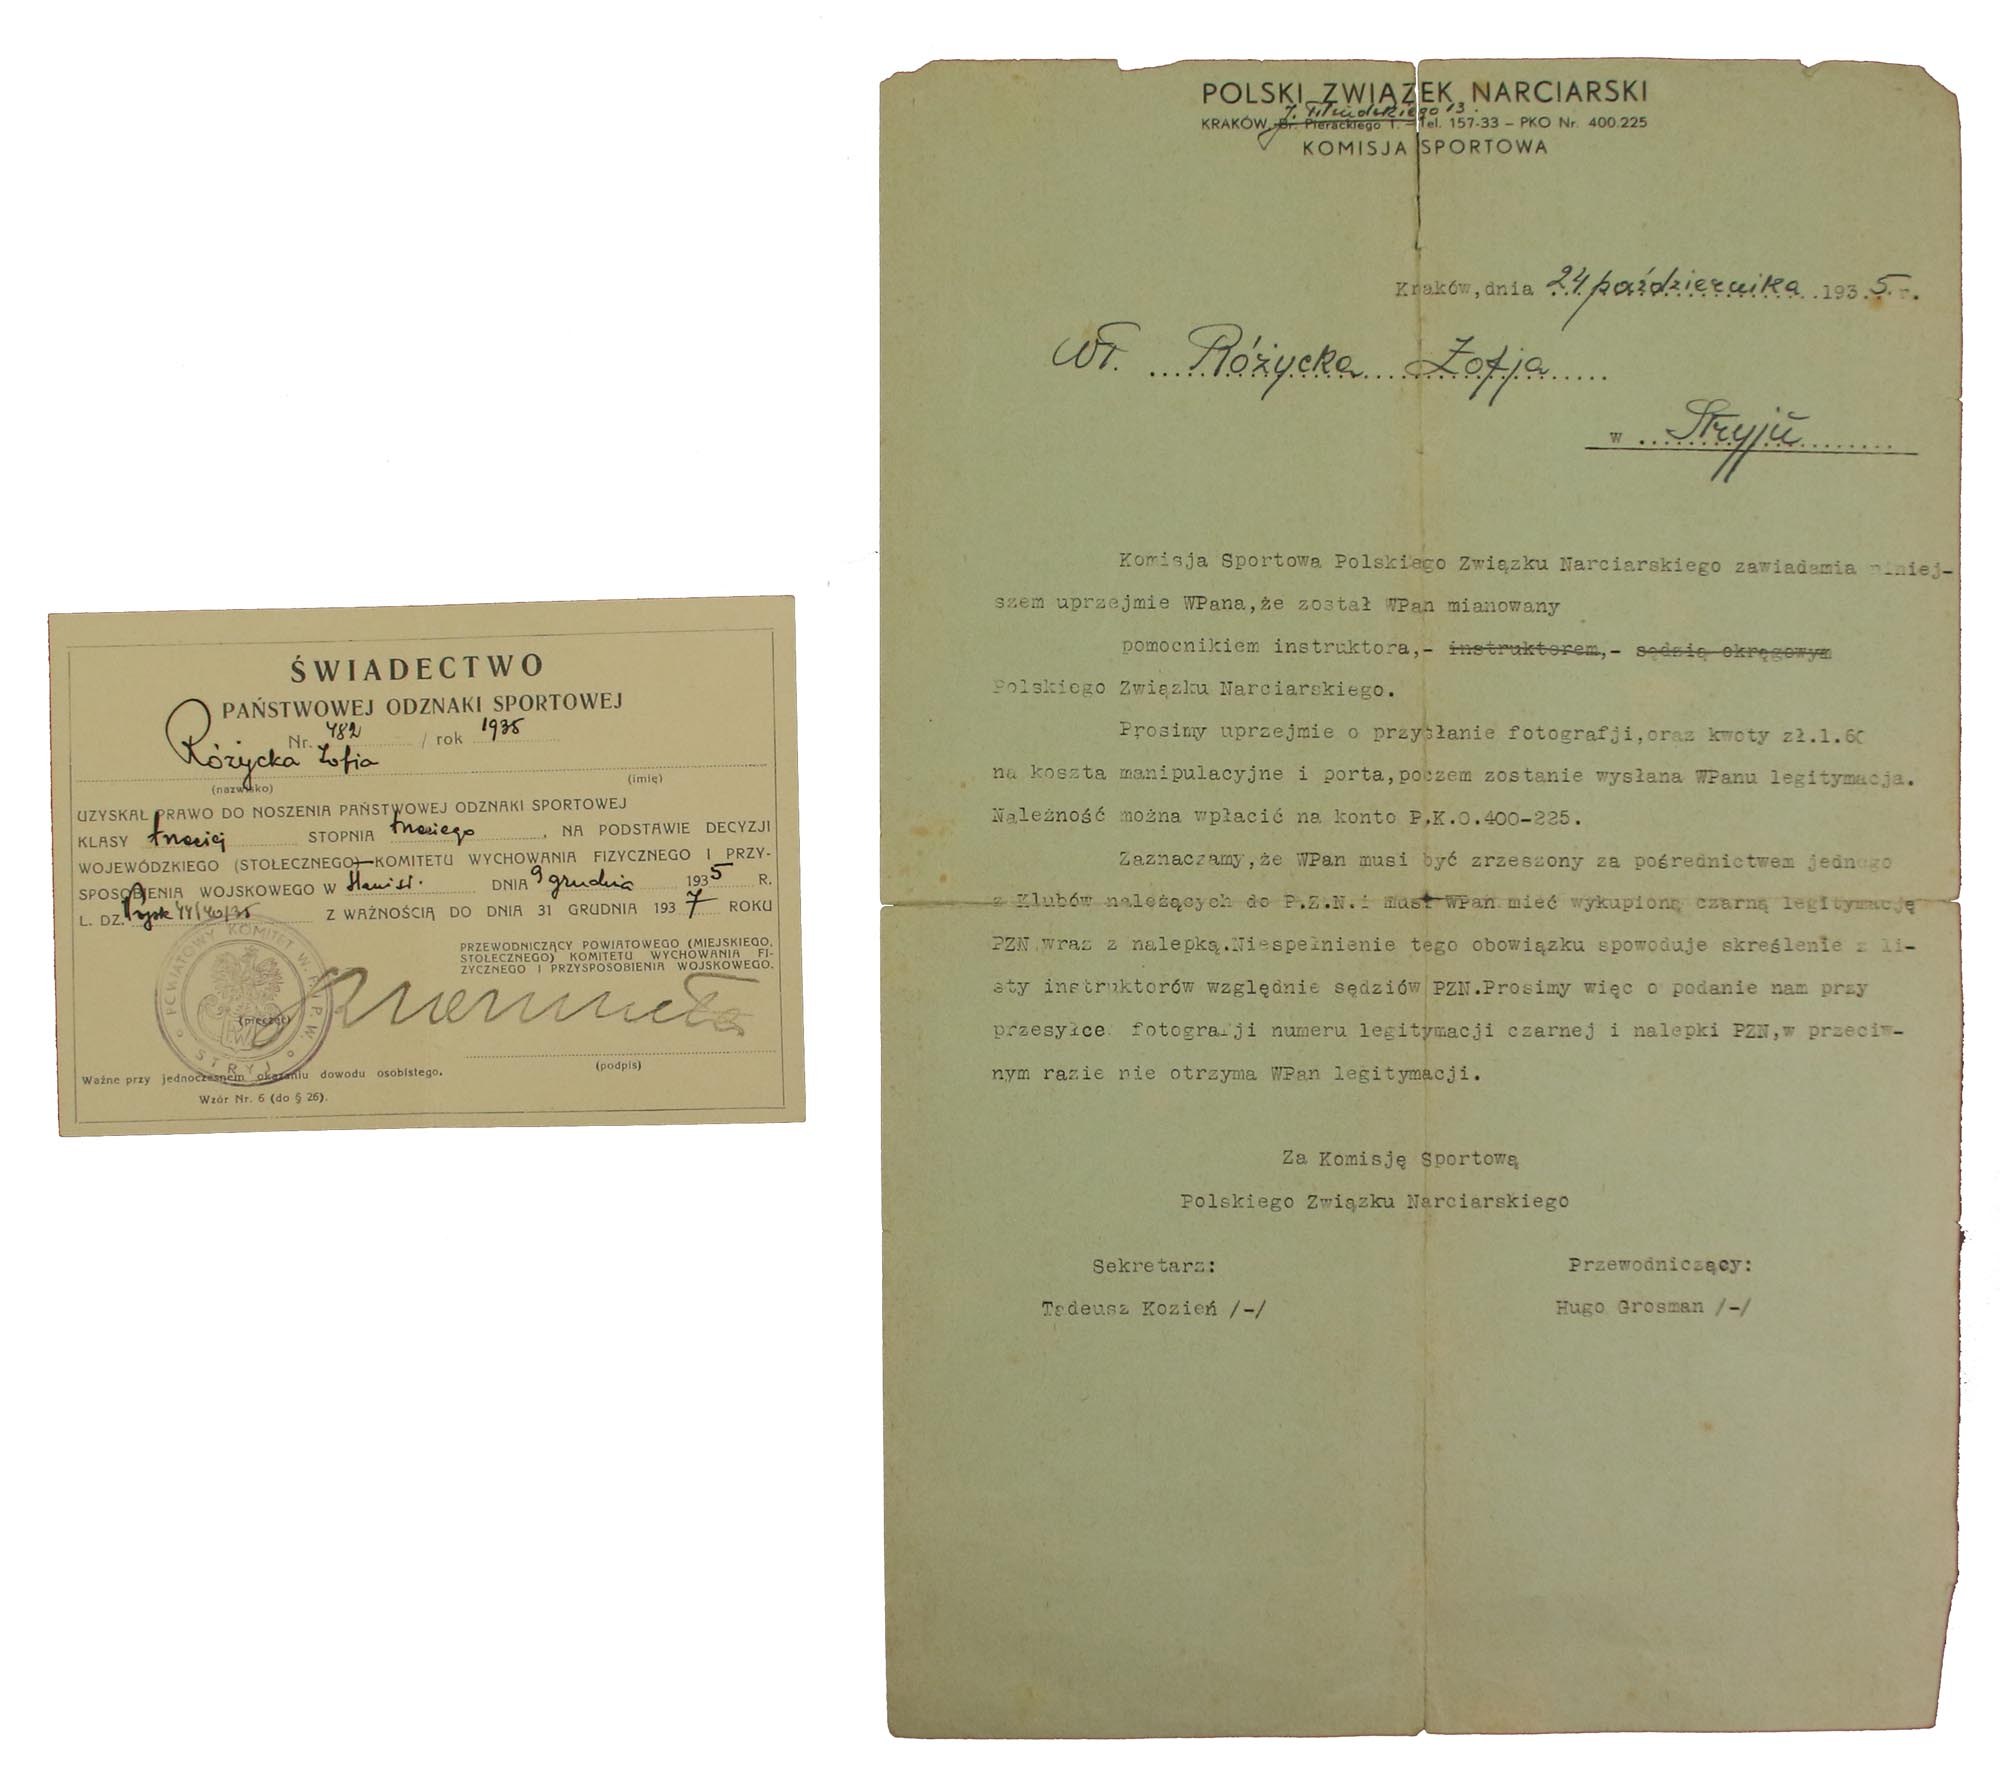 ŚWIADECTWO
PAŃSTWOWEJ ODZNAKI SPORTOWEJ
Nr. 482 / rok 1935
Różycka Zofia
(nazwisko) (imię)
UZYSKAŁ PRAWO DO NOSZENIA PAŃSTWOWEJ ODZNAKI SPORTOWEJ
KLASY trzeciej STOPNIA trzeciego, NA PODSTAWIE DECYZJI
WOJEWÓDZKIEGO (STOŁECZNEGO) KOMITETU WYCHOWANIA FIZYCZNEGO I PRZY-
SPOSOBIENIA WOJSKOWEGO W Stanisł. DNIA 9 grudnia 1935 R.
L. DZ. 44/40/35 Z WAŻNOŚCIĄ DO DNIA 31 GRUDNIA 1937 ROKU
PRZEWODNICZĄCY POWIATOWEGO (MIEJSKIEGO,
STOŁECZNEGO) KOMITETU WYCHOWANIA FI-
ZYCZNEGO I PRZYSPOSOBIENIA WOJSKOWEGO.
POWIATOWY KOMITET W.F. I P.W.
STRYJ
(pieczęć)
(podpis)
Ważne przy jednoczesnem okazaniu dowodu osobistego.
Wzór Nr. 6 (do § 26).
POLSKI ZWIĄZEK NARCIARSKI
J. Piłsudskiego 13.
KRAKÓW, Br. Pierackiego 1. – Tel. 157-33 – PKO Nr. 400.225
KOMISJA SPORTOWA
Kraków, dnia 24 października 1935 r.
WP. Różycka Zofja
w Stryju
Komisja Sportowa Polskiego Związku Narciarskiego zawiadamia niniej-
szem uprzejmie WPana,że został WPan mianowany
pomocnikiem instruktora,- instruktorem,- sędzią okręgowym
Polskiego Związku Narciarskiego.
Prosimy uprzejmie o przysłanie fotografji,oraz kwoty zł.1.60
na koszta manipulacyjne i porta,poczem zostanie wysłana WPanu legitymacja.
Należność można wpłacić na konto P.K.O.400-225.
Zaznaczamy,że WPan musi być zrzeszony za pośrednictwem jednego
z Klubów należących do P.Z.N.i musi WPan mieć wykupioną czarną legitymację
PZN wraz z nalepką.Niespełnienie tego obowiązku spowoduje skreślenie z li-
sty instruktorów względnie sędziów PZN.Prosimy więc o podanie nam przy
przesyłce fotografji numeru legitymacji czarnej i nalepki PZN,w przeciw-
nym razie nie otrzyma WPan legitymacji.
Za Komisję Sportową
Polskiego Związku Narciarskiego
Sekretarz: Przewodniczący:
Tadeusz Kozień /-/ Hugo Grosman /-/